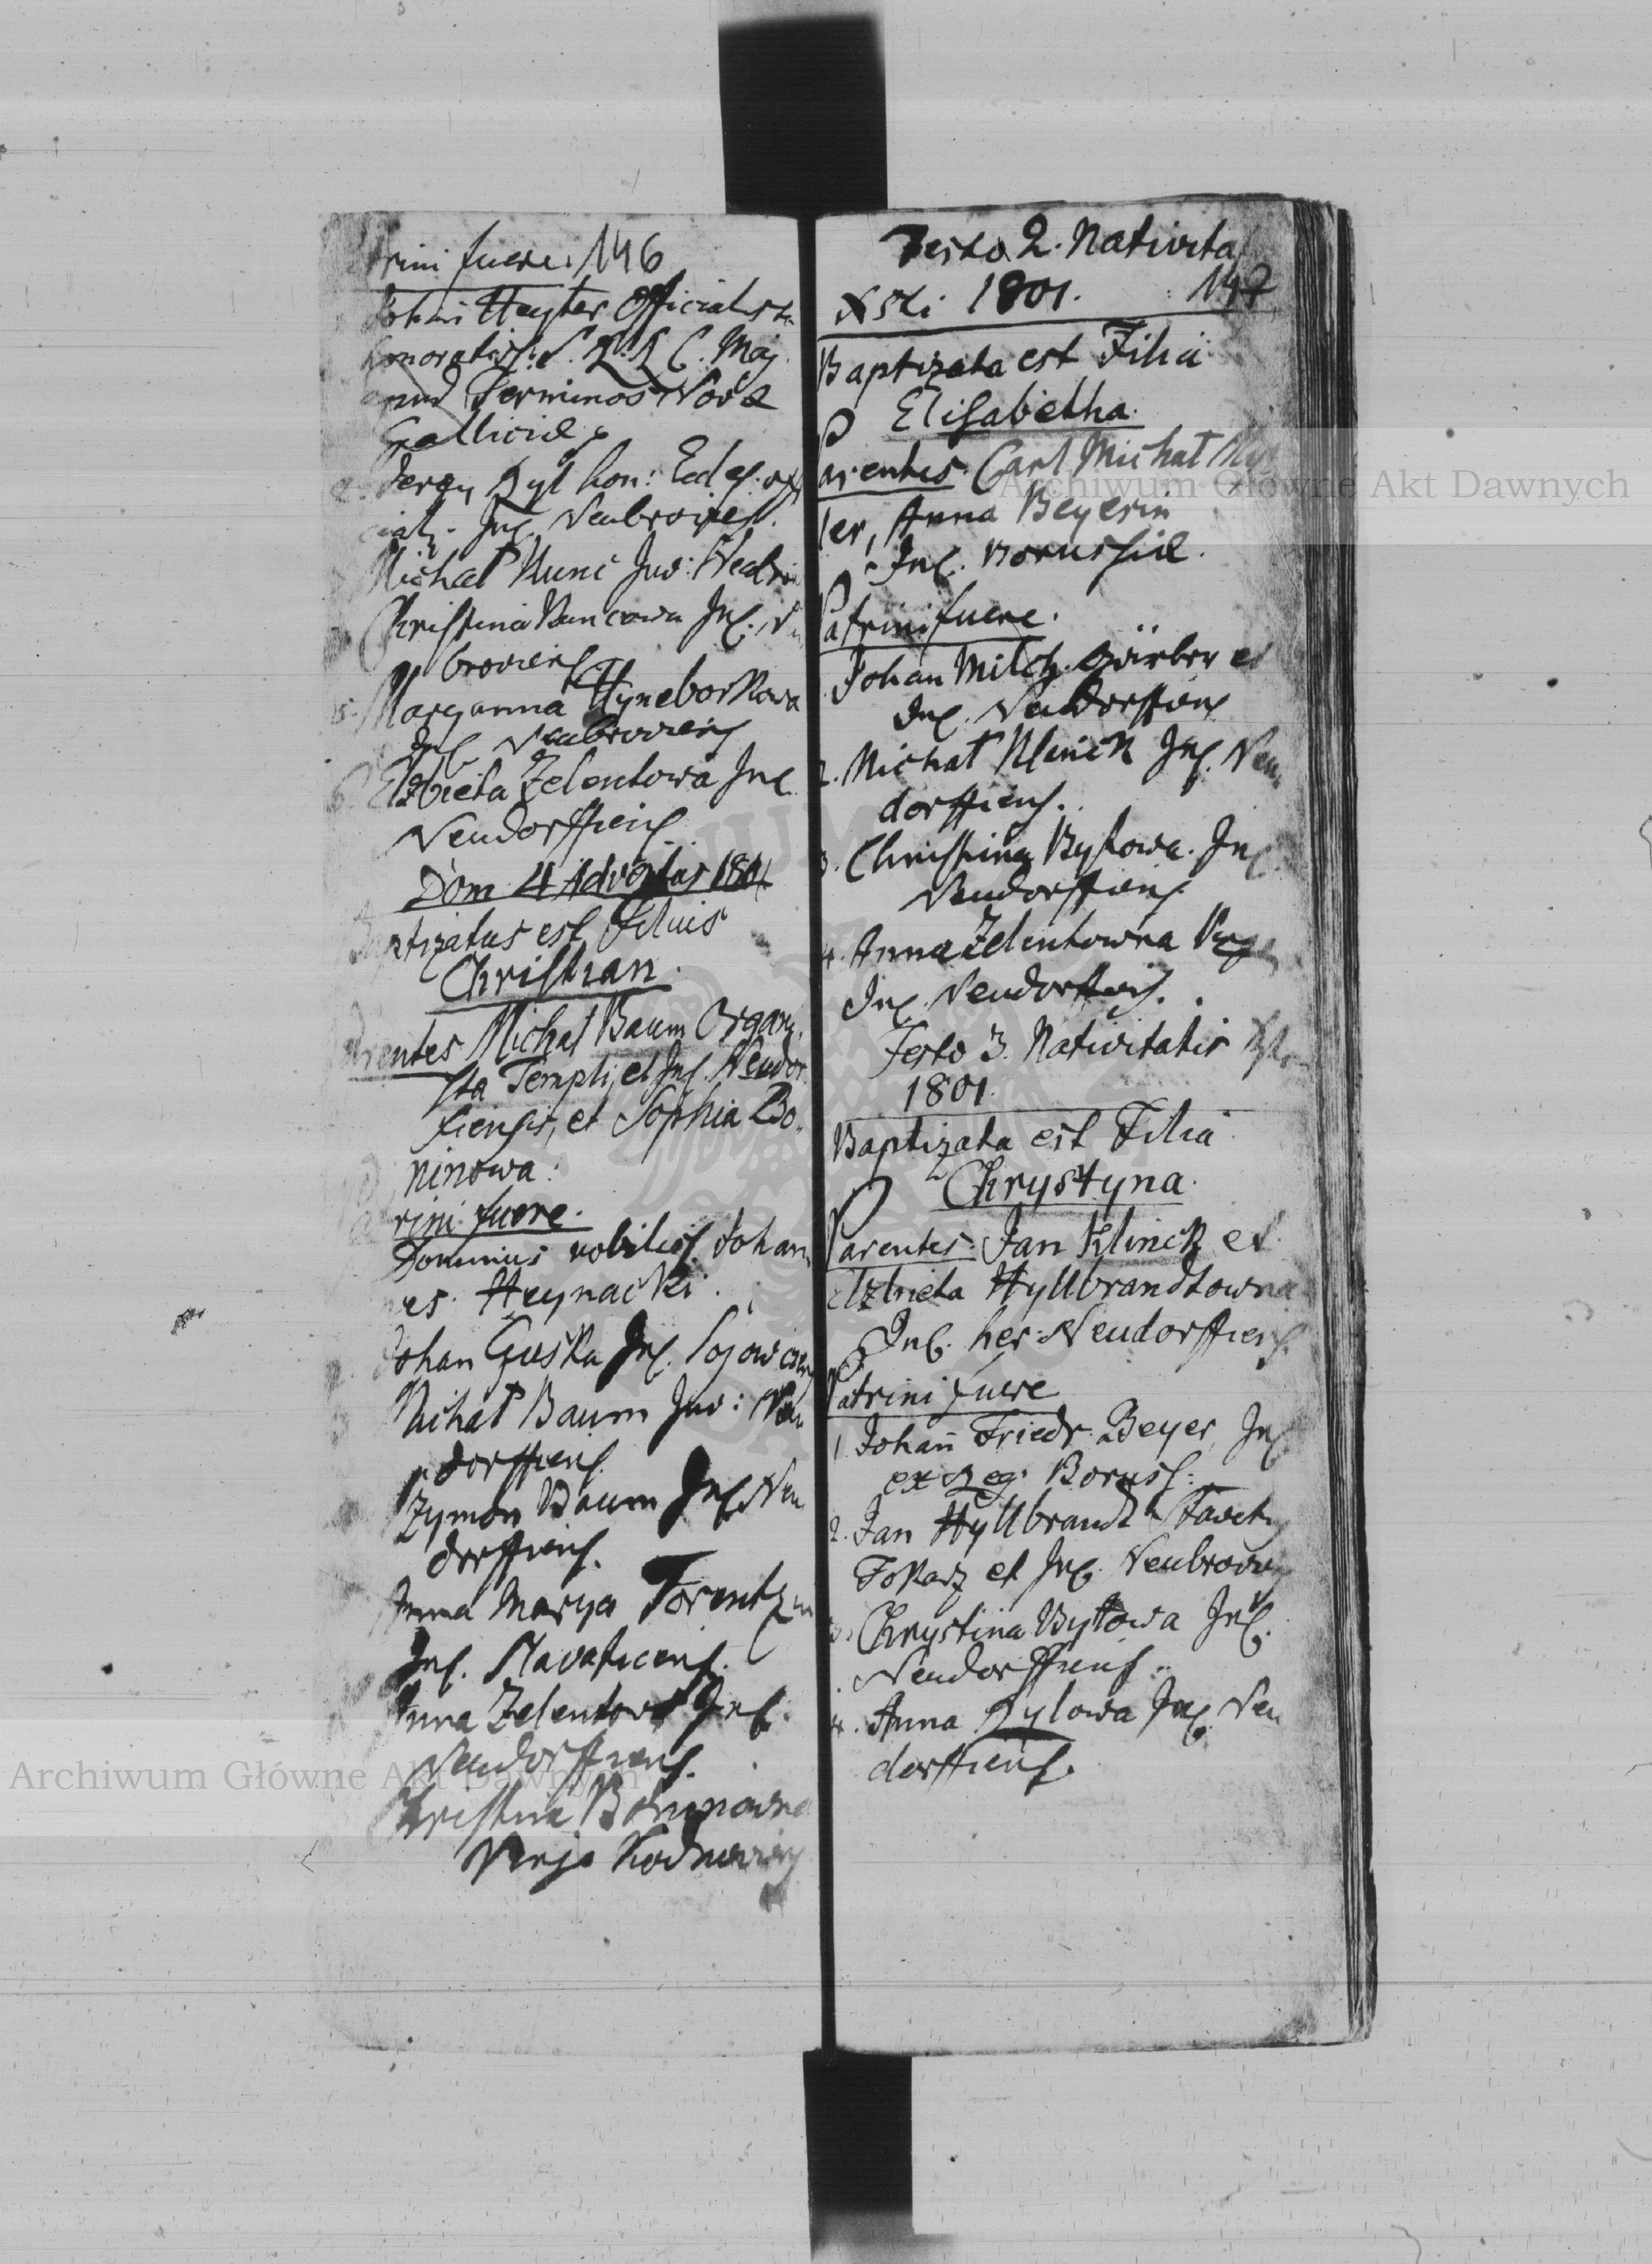 trini fuere. 146
Johan Heyter Officialista
honoratis: S. R. K. C. Maj.
apud Terminos Novae
Galliciae.
Jerzy Ryl hon: Eccl:
Inc. Neubroviens.
Michał Kunc Juv: Neubrov
Christina Kuncowa Inc. Neu
broviens.
5. Maryanna Hyneborkowa
Inc. Neubroviens
6. Elzbieta Zelentowa Inc
Neudorffiens
Dom 4 Adventus 1801
Baptizatus est Filius
Christian.
Parentes Michał Baum Organi,
sta Templi, et Inc. Neudor
fiensis, et Sophia Bo.
ninowa:
Patrini fuere.
Dominus nobiliss. Johan
es. Heynacki.
Johan Guska Inc.
Michał Baum Juv: Neu
dorffiens.
Szymon Baum Inc. Neu
dorffiens.
Anna Marya Torentz
Inc. Slavaticens.
Anna Zelentow Inc.
Neudorffiens.
Christina Boninowna
Virgo
Festo 2. Nativita
Xsti 1801. 147
Baptizata est Filia
Elisabetha.
Parentes. Carl Michał
ler, Anna Beyerin
Inc. Borussiae.
Patrini fuere.
Johan Milch. Gärber et
Inc. Neudorffiens
2. Michał Klinck Inc. Neu
dorffiens.
3. Christina Bytowa. Inc.
Neudorffiens
4. Anna Zelentowna Virgo
Inc. Neudorffiens.
Festo 3. Nativitatis
1801.
Baptizata est Filia
Chrystyna.
Parentes: Jan Klinck et
Elzbieta Hyllbrandtowna
Inc. her: Neudorffiens.
Patrini fuere
1. Johan Friedr. Beyer, Inc
ex Reg. Boruss:
2. Jan Hyllbrandt
Tokarz et Inc. Neubrov
3. Chrystina Bytowa Inc.
Neudorffiens.
4. Anna Rylowa Inc. Neu
dorffiens.
Archiwum Główne Akt Dawnych
Archiwum Główne Akt Dawnych